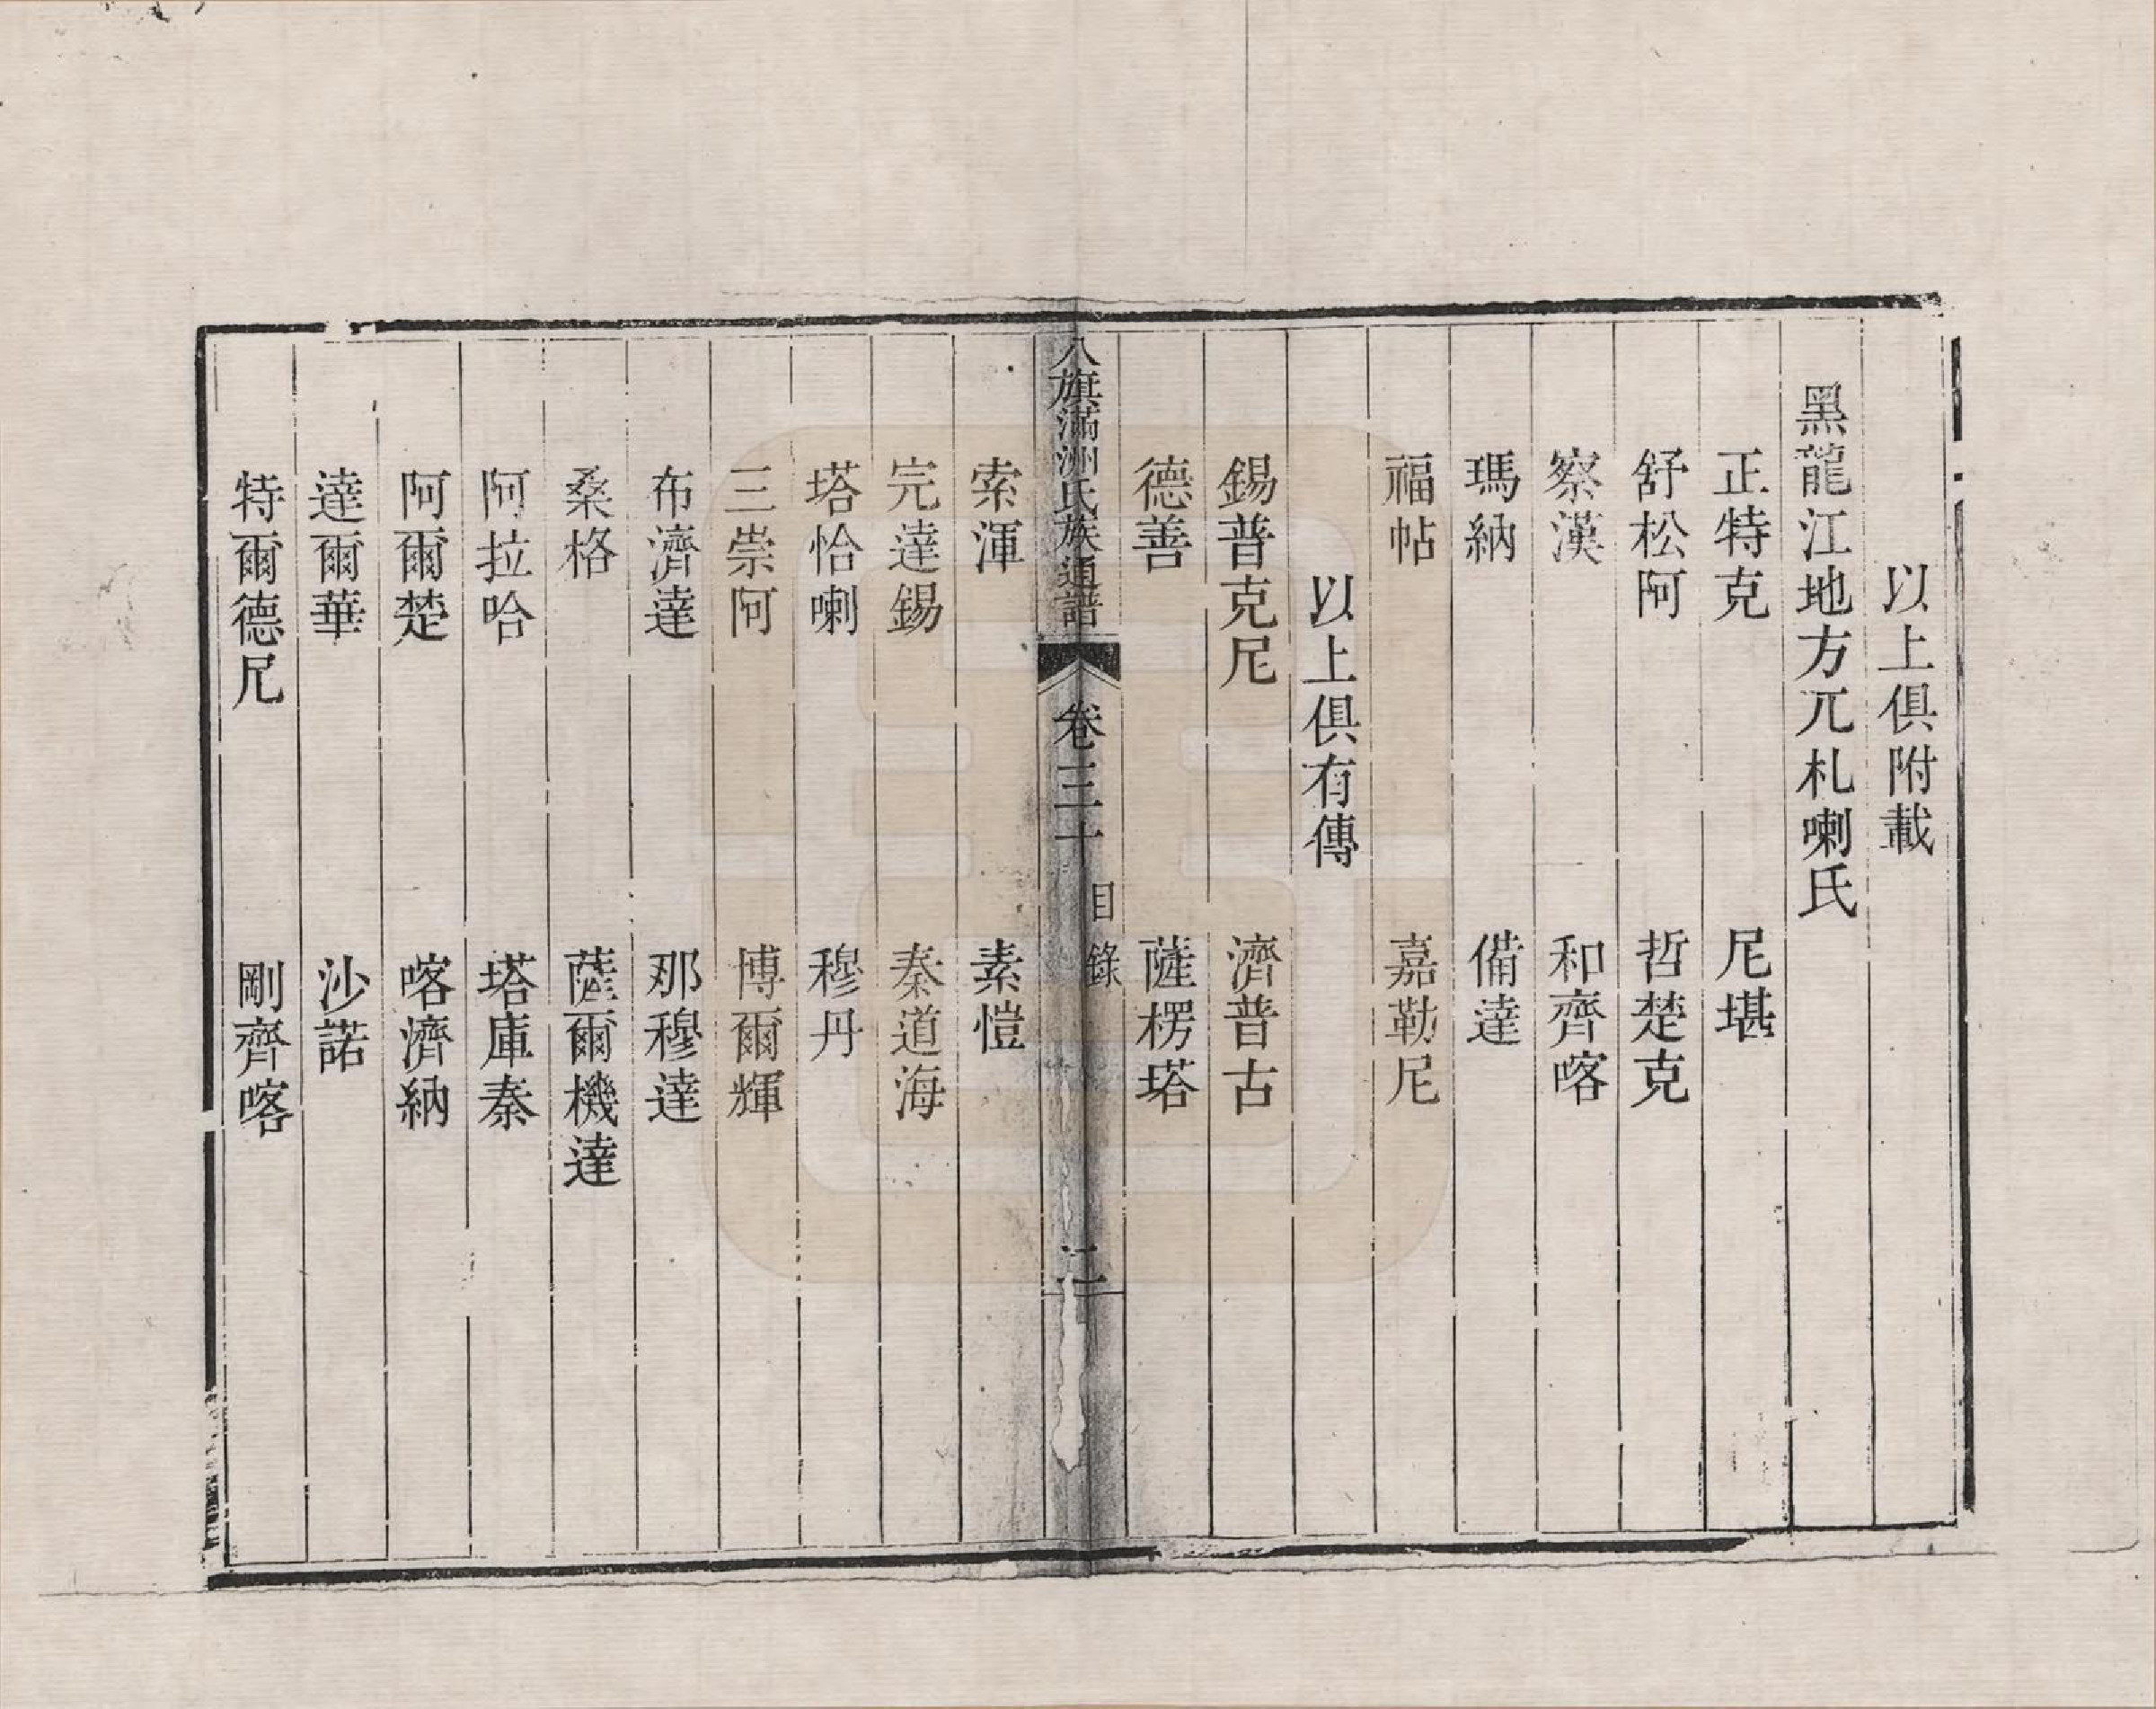 以上俱附載
黑龍江地方兀札喇氏
正特克　尼堪
舒松阿　哲楚克
察漢　和齊喀
瑪納　備達
福帖　嘉勒尼
以上俱有傳
錫普克尼　濟普古
德善　薩楞塔
八旗滿洲氏族通譜　卷三十　目錄　二
索渾　素愷
完達錫　秦道海
塔恰喇　穆丹
三崇阿　博爾輝
布濟達　那穆達
桑格　薩爾機達
阿拉哈　塔庫秦
阿爾楚　喀濟納
達爾華　沙諾
特爾德尼　剛齊喀